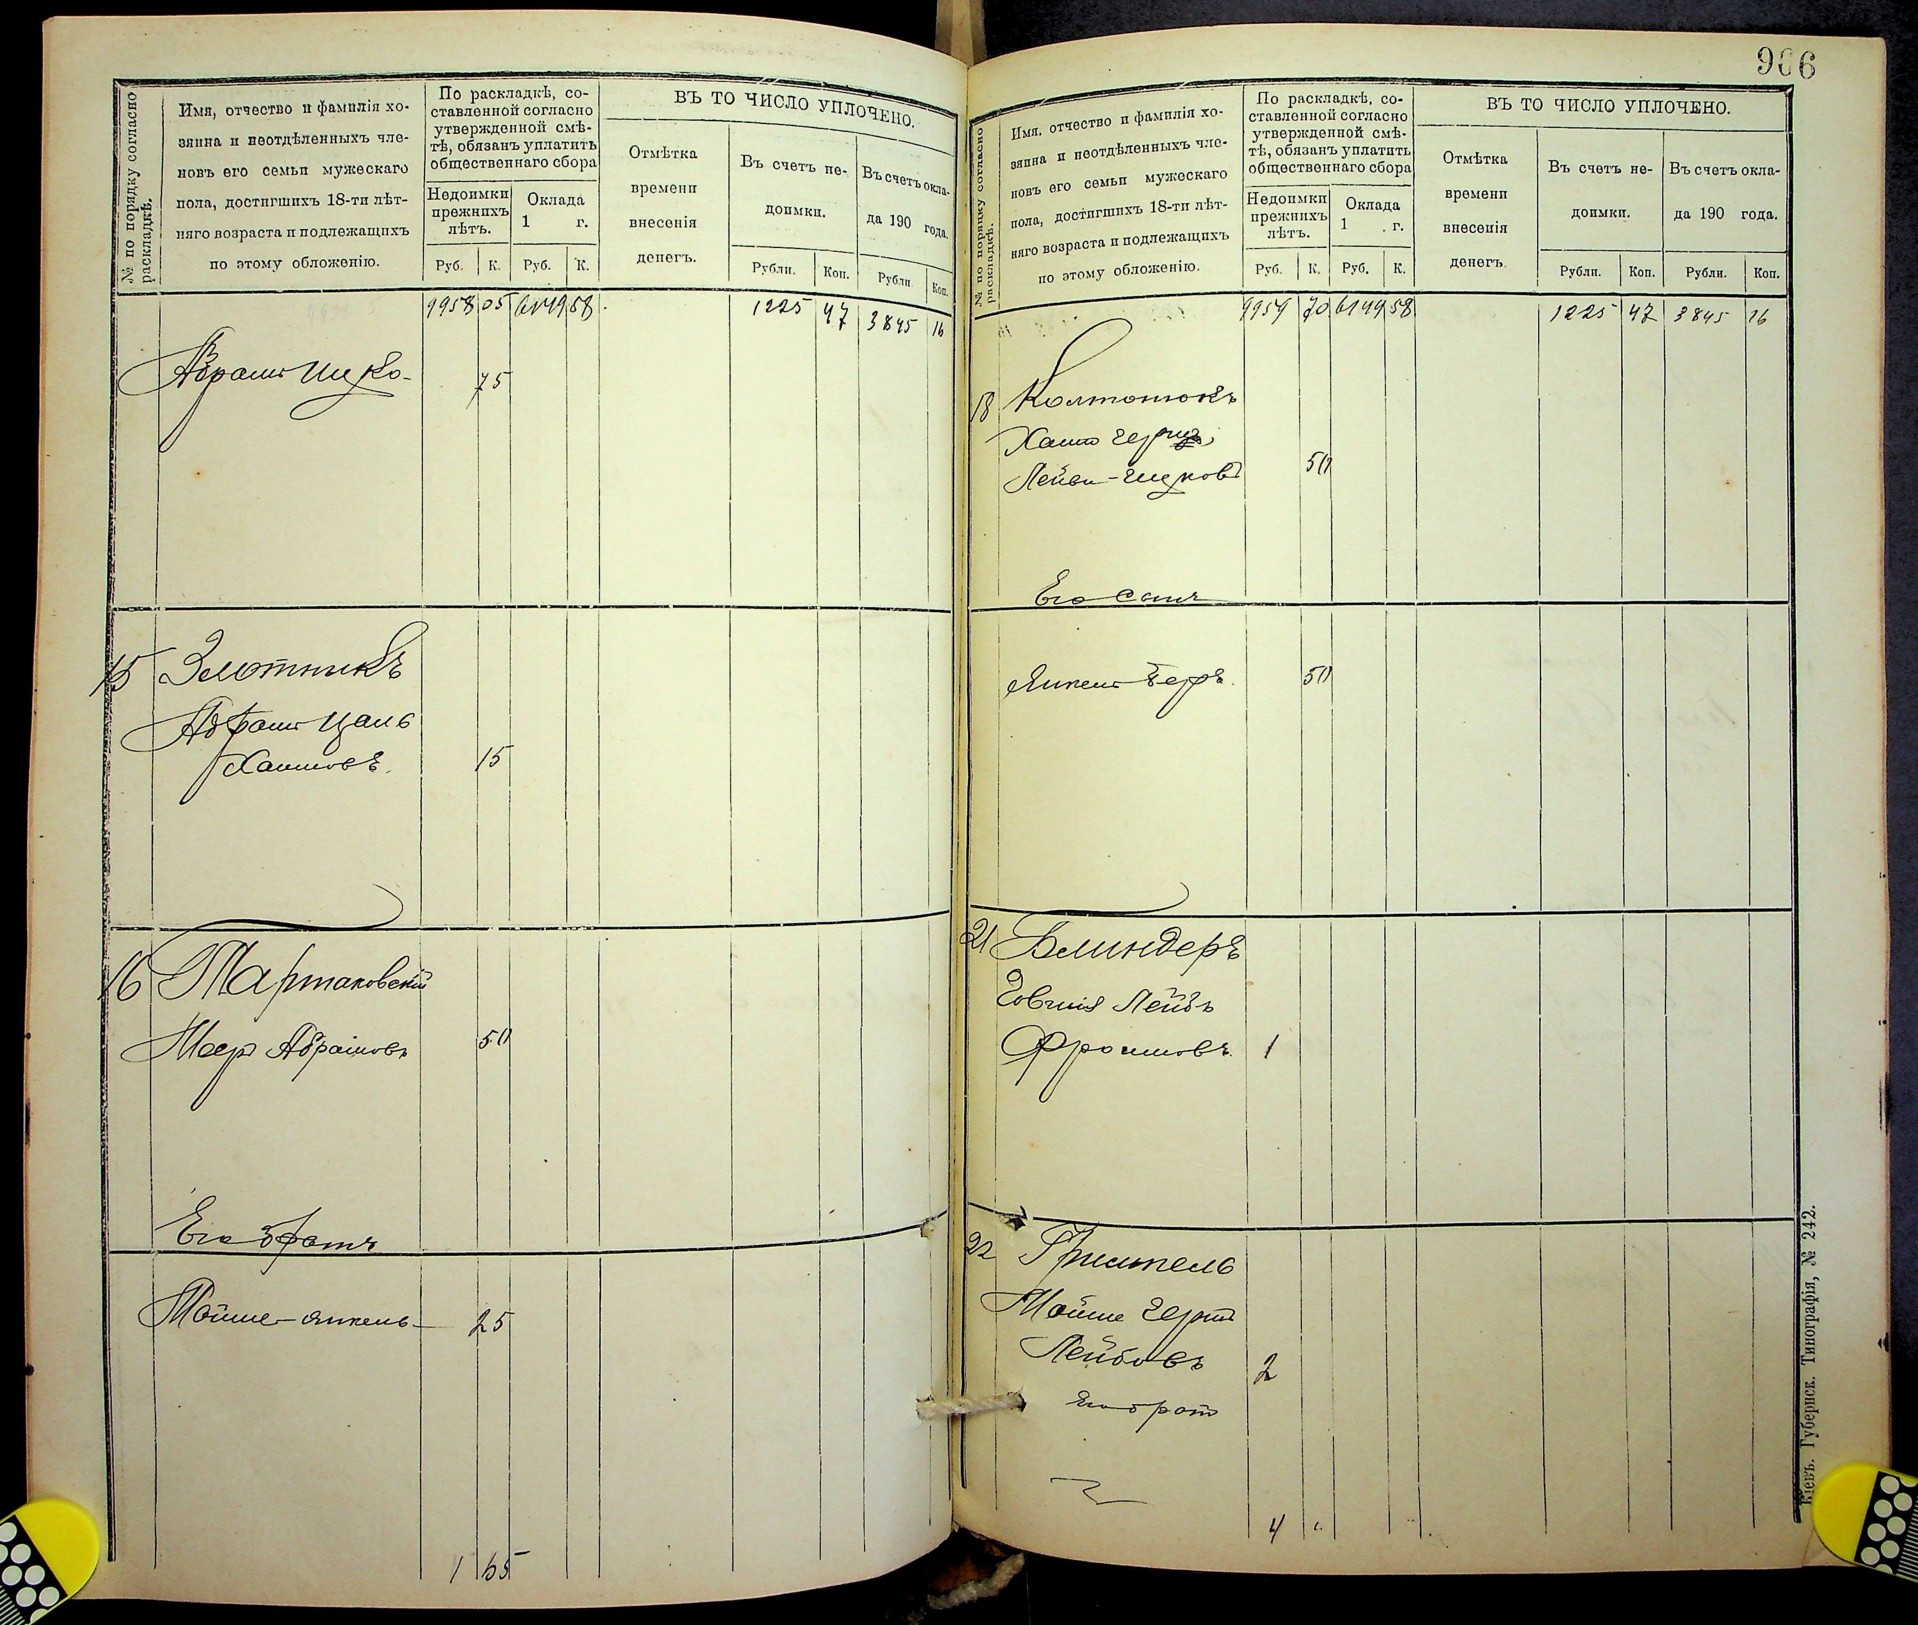 906
№ по порядку согласно раскладкѣ.
Имя, отчество и фамилія хо-
зяина и неотдѣленныхъ чле-
новъ его семьи мужескаго
пола, достигшихъ 18-ти лѣт-
няго возраста и подлежащихъ
по этому обложенію.
По раскладкѣ, со-
ставленной согласно
утвержденной смѣ-
тѣ, обязанъ уплатить
общественнаго сбора
Недоимки
прежнихъ
лѣтъ.
Оклада
1 г.
Руб. К. Руб. К.
ВЪ ТО ЧИСЛО УПЛОЧЕНО.
Отмѣтка
времени
внесенія
денегъ.
Въ счетъ не-
доимки.
Въ счетъ окла-
да 190 года.
Рубли. Коп. Рубли. Коп.
9958 05 6149 58 1225 47 3845 16
Абрамъ
75
15 Злотникъ
Абрамъ Цаль
Хаимовъ 15
16 Тартаковскій
Меер Абрамовъ 50
Его братъ
Мойше-Янкель 25
1 65
№ по порядку согласно раскладкѣ.
Имя, отчество и фамилія хо-
зяина и неотдѣленныхъ чле-
новъ его семьи мужескаго
пола, достигшихъ 18-ти лѣт-
няго возраста и подлежащихъ
по этому обложенію.
По раскладкѣ, со-
ставленной согласно
утвержденной смѣ-
тѣ, обязанъ уплатить
общественнаго сбора
Недоимки
прежнихъ
лѣтъ.
Оклада
1 г.
Руб. К. Руб. К.
ВЪ ТО ЧИСЛО УПЛОЧЕНО.
Отмѣтка
времени
внесенія
денегъ.
Въ счетъ не-
доимки.
Въ счетъ окла-
да 190 года.
Рубли. Коп. Рубли. Коп.
9959 70 6149 58 1225 47 3845 16
18 Колтонюкъ
Хаим Герш
Лейви-Ицков 50
Его сынъ
Янкель Беръ 50
21 Блиндеръ
Говшія Лейбъ
Фроимовъ 1
22 Гриштель
Мойше Герш
Лейбовъ 2
Его брат
4 "
Кіевъ. Губернск. Типографія, № 242.